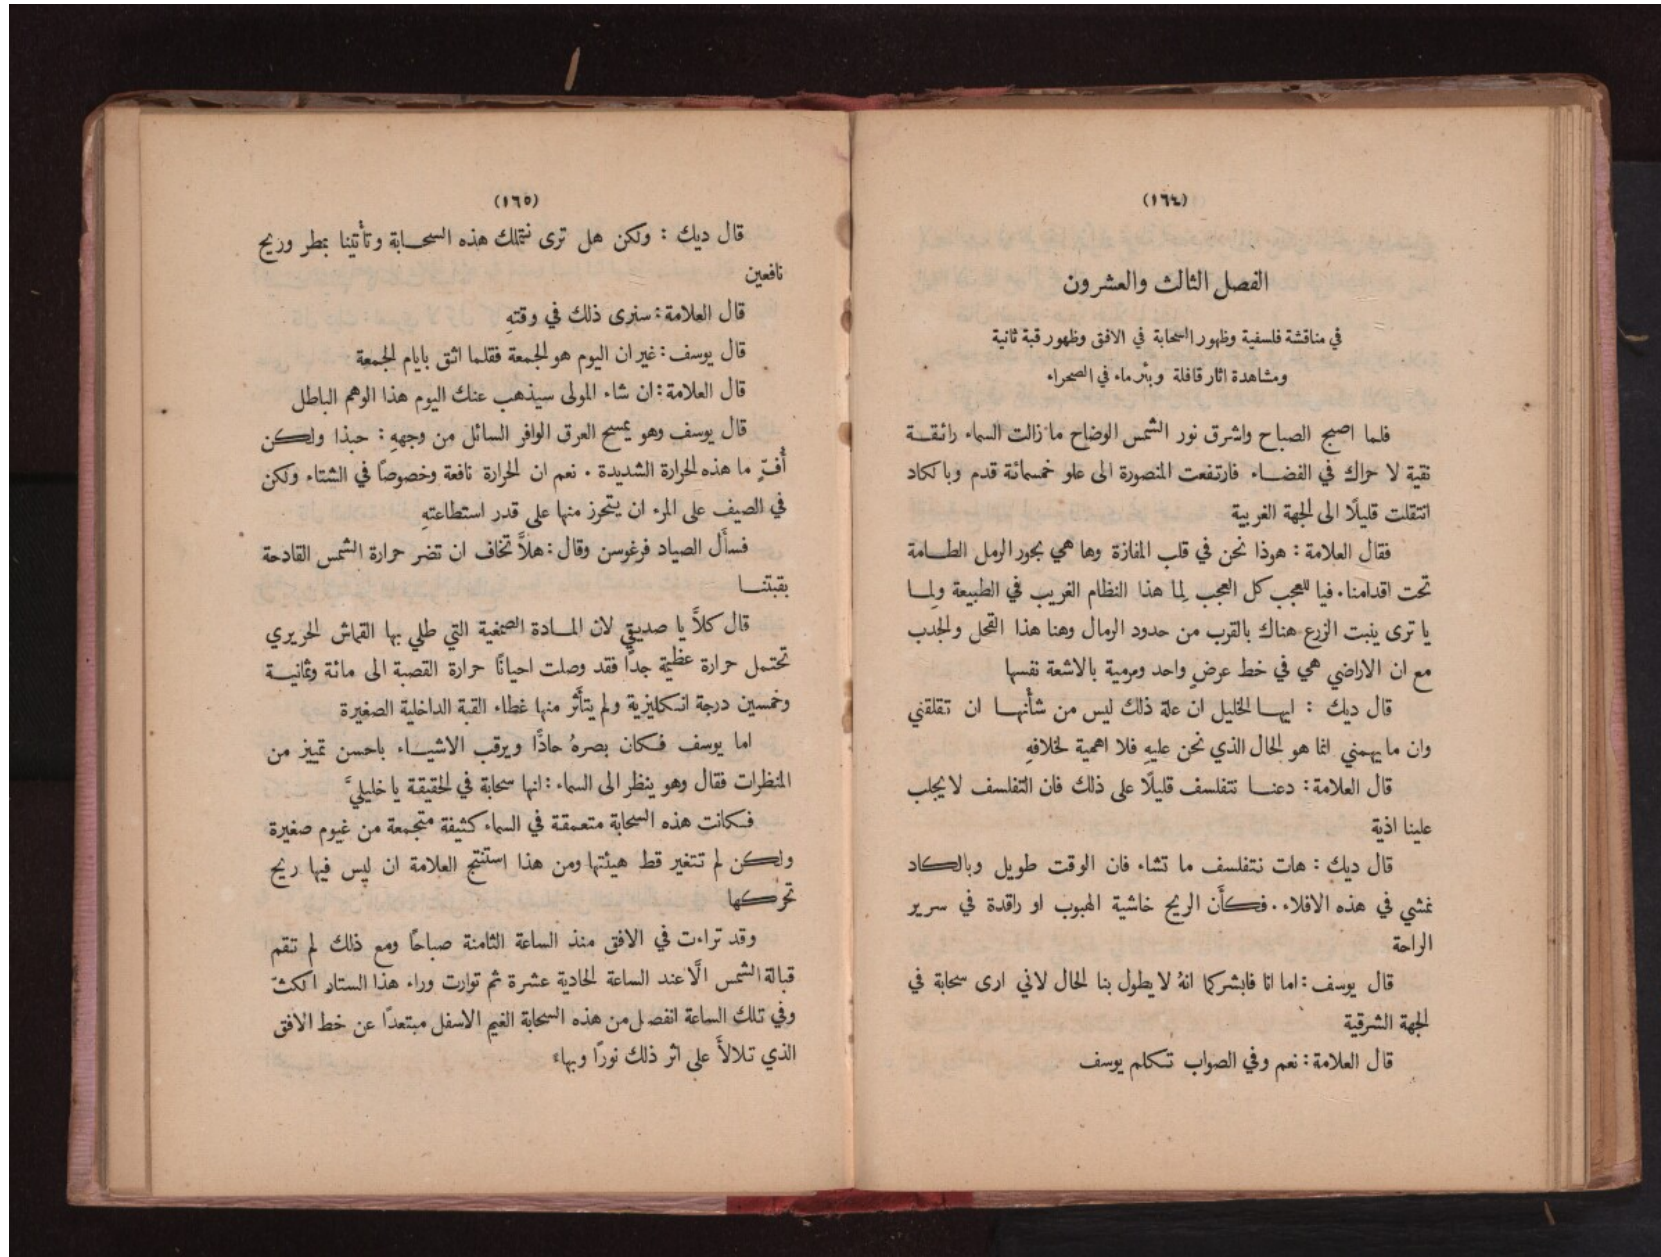 (١٦٤)
الفصل الثالث والعشرون
في مناقشة فلسفية وظهور السحابة في الافق وظهور قبة ثانية
ومشاهدة اثار قافلة وبئر ماء في الصحراء
فلما اصبح الصباح واشرق نور الشمس الوضاح ما زالت السماء رائقة
نقية لا حراك في الفضاء فارتفعت المنصورة الى علو خمسمائة قدم وبالكاد
انتقلت قليلًا الى الجهة الغربية
فقال العلامة : هوذا نحن في قلب المفازة وها هي بحور الرمل الطامة
تحت اقدامنا . فيا للعجب كل العجب لِما هذا النظام الغريب في الطبيعة ولِما
يا ترى ينبت الزرع هناك بالقرب من حدود الرمال وهنا هذا القحل والجدب
مع ان الاراضي هي في خط عرضٍ واحد ومرمية بالاشعة نفسها
قال ديك : ايها الخليل ان علة ذلك ليس من شأنها ان تقلقني
وان ما يهمني انما هو الحال الذي نحن عليهِ فلا اهمية لخلافهِ
قال العلامة : دعنا نتفلسف قليلًا على ذلك فان التفلسف لا يجلب
علينا اذية
قال ديك : هات نتفلسف ما تشاء فان الوقت طويل وبالكاد
نمشي في هذه الافلاء . فكأَن الريح خاشية الهبوب او راقدة في سرير
الراحة
قال يوسف : اما انا فابشركما انهُ لا يطول بنا الحال لاني ارى سحابة في
الجهة الشرقية
قال العلامة : نعم وفي الصواب تكلم يوسف
(١٦٥)
قال ديك : ولكن هل ترى نتملك هذه السحابة وتأتينا بمطر وريح
نافعين
قال العلامة : سنرى ذلك في وقتهِ
قال يوسف : غير ان اليوم هو الجمعة فقلما اثق بايام الجمعة
قال العلامة : ان شاء المولى سيذهب عنك اليوم هذا الوهم الباطل
قال يوسف وهو يمسح العرق الوافر السائل من وجههِ : حبذا ولكن
أُفٍّ ما هذه الحرارة الشديدة . نعم ان الحرارة نافعة وخصوصًا في الشتاء ولكن
في الصيف على المرء ان يتحرز منها على قدر استطاعتهِ
فسأَل الصياد فرغوسن وقال : هلاَّ تخاف ان تضر حرارة الشمس القادحة
بقبتنا
قال كلاَّ يا صديقي لان المادة الصمغية التي طلي بها القماش الحريري
تحتمل حرارة عظيمة جدًّا فقد وصلت احيانًا حرارة القصبة الى مائة وثمانية
وخمسين درجة انكليزية ولم يتأَثر منها غطاء القبة الداخلية الصغيرة
اما يوسف فكان بصرهُ حادًّا ويرقب الاشياء باحسن تمييز من
المنظرات فقال وهو ينظر الى السماء : انها سحابة في الحقيقة يا خليليَّ
فكانت هذه السحابة متعمقة في السماء كثيفة متجمعة من غيوم صغيرة
ولكن لم تتغير قط هيئتها ومن هذا استنتج العلامة ان ليس فيها ريح
تحركها
وقد تراءت في الافق منذ الساعة الثامنة صباحًا ومع ذلك لم تقم
قبالة الشمس الَّا عند الساعة الحادية عشرة ثم توارت وراء هذا الستار الكثّ
وفي تلك الساعة انفصل من هذه السحابة الغيم الاسفل مبتعدًا عن خط الافق
الذي تلالأَ على اثر ذلك نورًا وبهاءً